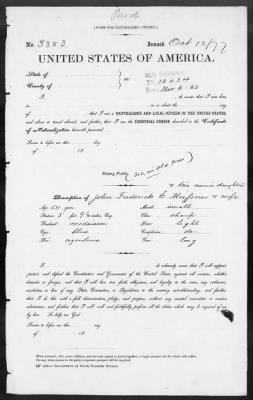 Paid
[FORM FOR NATURALIZED CITIZEN.]
No. 9383 Issued Oct 12/77
UNITED STATES OF AMERICA.
State of
County of
OLD PASSPORT
No. 12034
Nov 6-63
I, do swear that I was born
in on or about the day
of that I am a NATURALIZED AND LOYAL CITIZEN OF THE UNITED STATES,
and about to travel abroad; and further, that I am the IDENTICAL PERSON described in the Certificate
of Naturalization herewith presented.
Sworn to before me this day
of 18
Notary Public
& two minor daughters
Description of John Frederick C. & wife
Age: years Mouth: small
Stature: 5 ft Inches, Eng. Chin: sharp
Forehead: Hair: light
Eyes: blue Complexion: do
Nose: aquiline Face: long
I, do solemnly swear that I will support,
protect, and defend the Constitution and Government of the United States against all enemies, whether
domestic or foreign; and that I will bear true faith, allegiance, and loyalty to the same, any ordinance,
resolution, or law of any State, Convention, or Legislature to the contrary notwithstanding; and further,
that I do this with a full determination, pledge, and purpose, without any mental reservation or evasion
whatsoever; and further, that I will well and faithfully perform all the duties which may be required of me
by law: So help me God.
Sworn to before me, this day
of 18
When husband, wife, minor children, and servants expect to travel together, a single passport for the whole will suffice.
For any other person in the party a separate passport will be required.